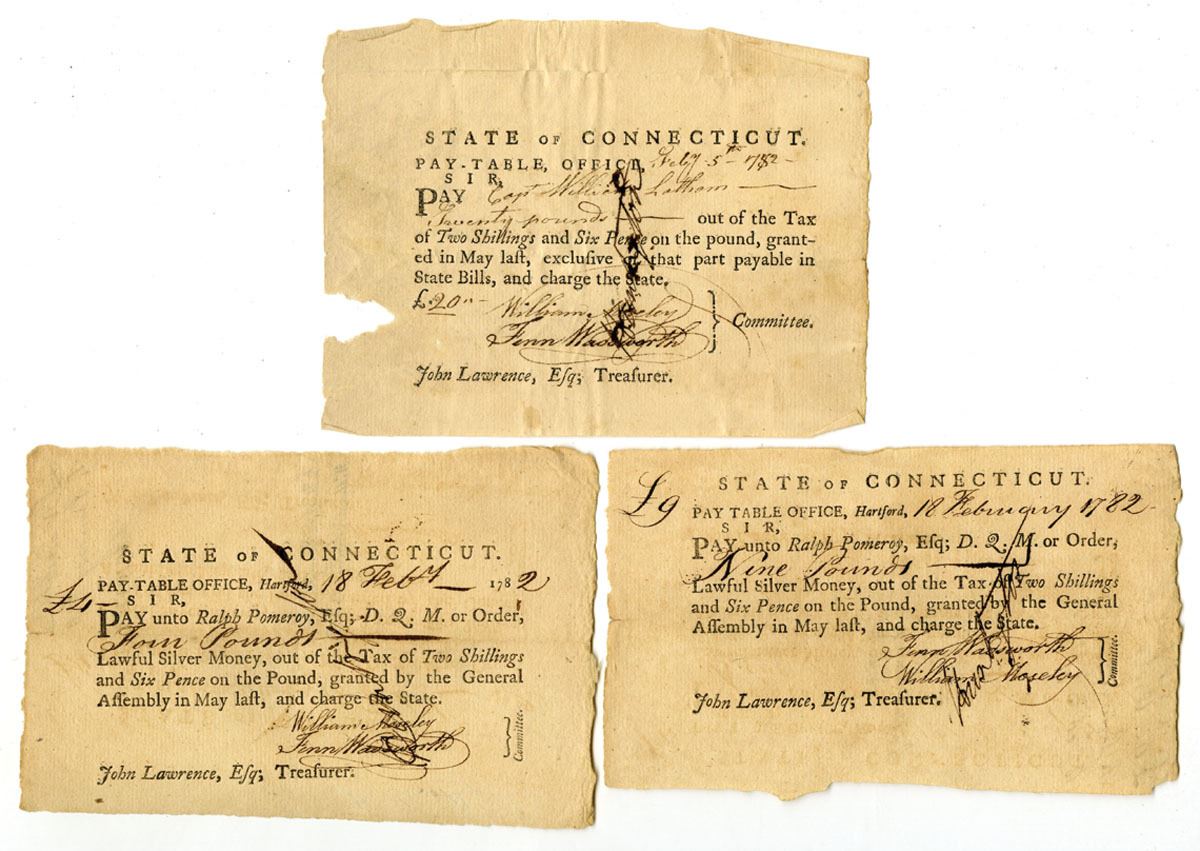 STATE OF CONNECTICUT.
PAY-TABLE, OFFICE, Feby 5th 1782
SIR,
PAY Capt William Latham
Twenty pounds out of the Tax
of Two Shillings and Six Pence on the pound, grant-
ed in May laſt, excluſive of that part payable in
State Bills, and charge the State.
£.20"-
William Moseley
Fenn Wadsworth
} Committee.
John Lawrence, Eſq; Treaſurer.
STATE OF CONNECTICUT.
PAY-TABLE OFFICE, Hartford, 18 Feby 1782
£4 SIR,
PAY unto Ralph Pomeroy, Eſq; D. Q. M. or Order,
Four Pounds
Lawful Silver Money, out of the Tax of Two Shillings
and Six Pence on the Pound, granted by the General
Aſſembly in May laſt, and charge the State.
William Moseley
Fenn Wadsworth
} Committee.
John Lawrence, Eſq; Treaſurer.
STATE OF CONNECTICUT.
£9 PAY TABLE OFFICE, Hartford, 18 February 1782
SIR,
PAY unto Ralph Pomeroy, Eſq; D. Q. M. or Order,
Nine Pounds
Lawful Silver Money, out of the Tax of Two Shillings
and Six Pence on the Pound, granted by the General
Aſſembly in May laſt, and charge the State.
Fenn Wadsworth
William Moseley
} Committee.
John Lawrence, Eſq; Treaſurer.